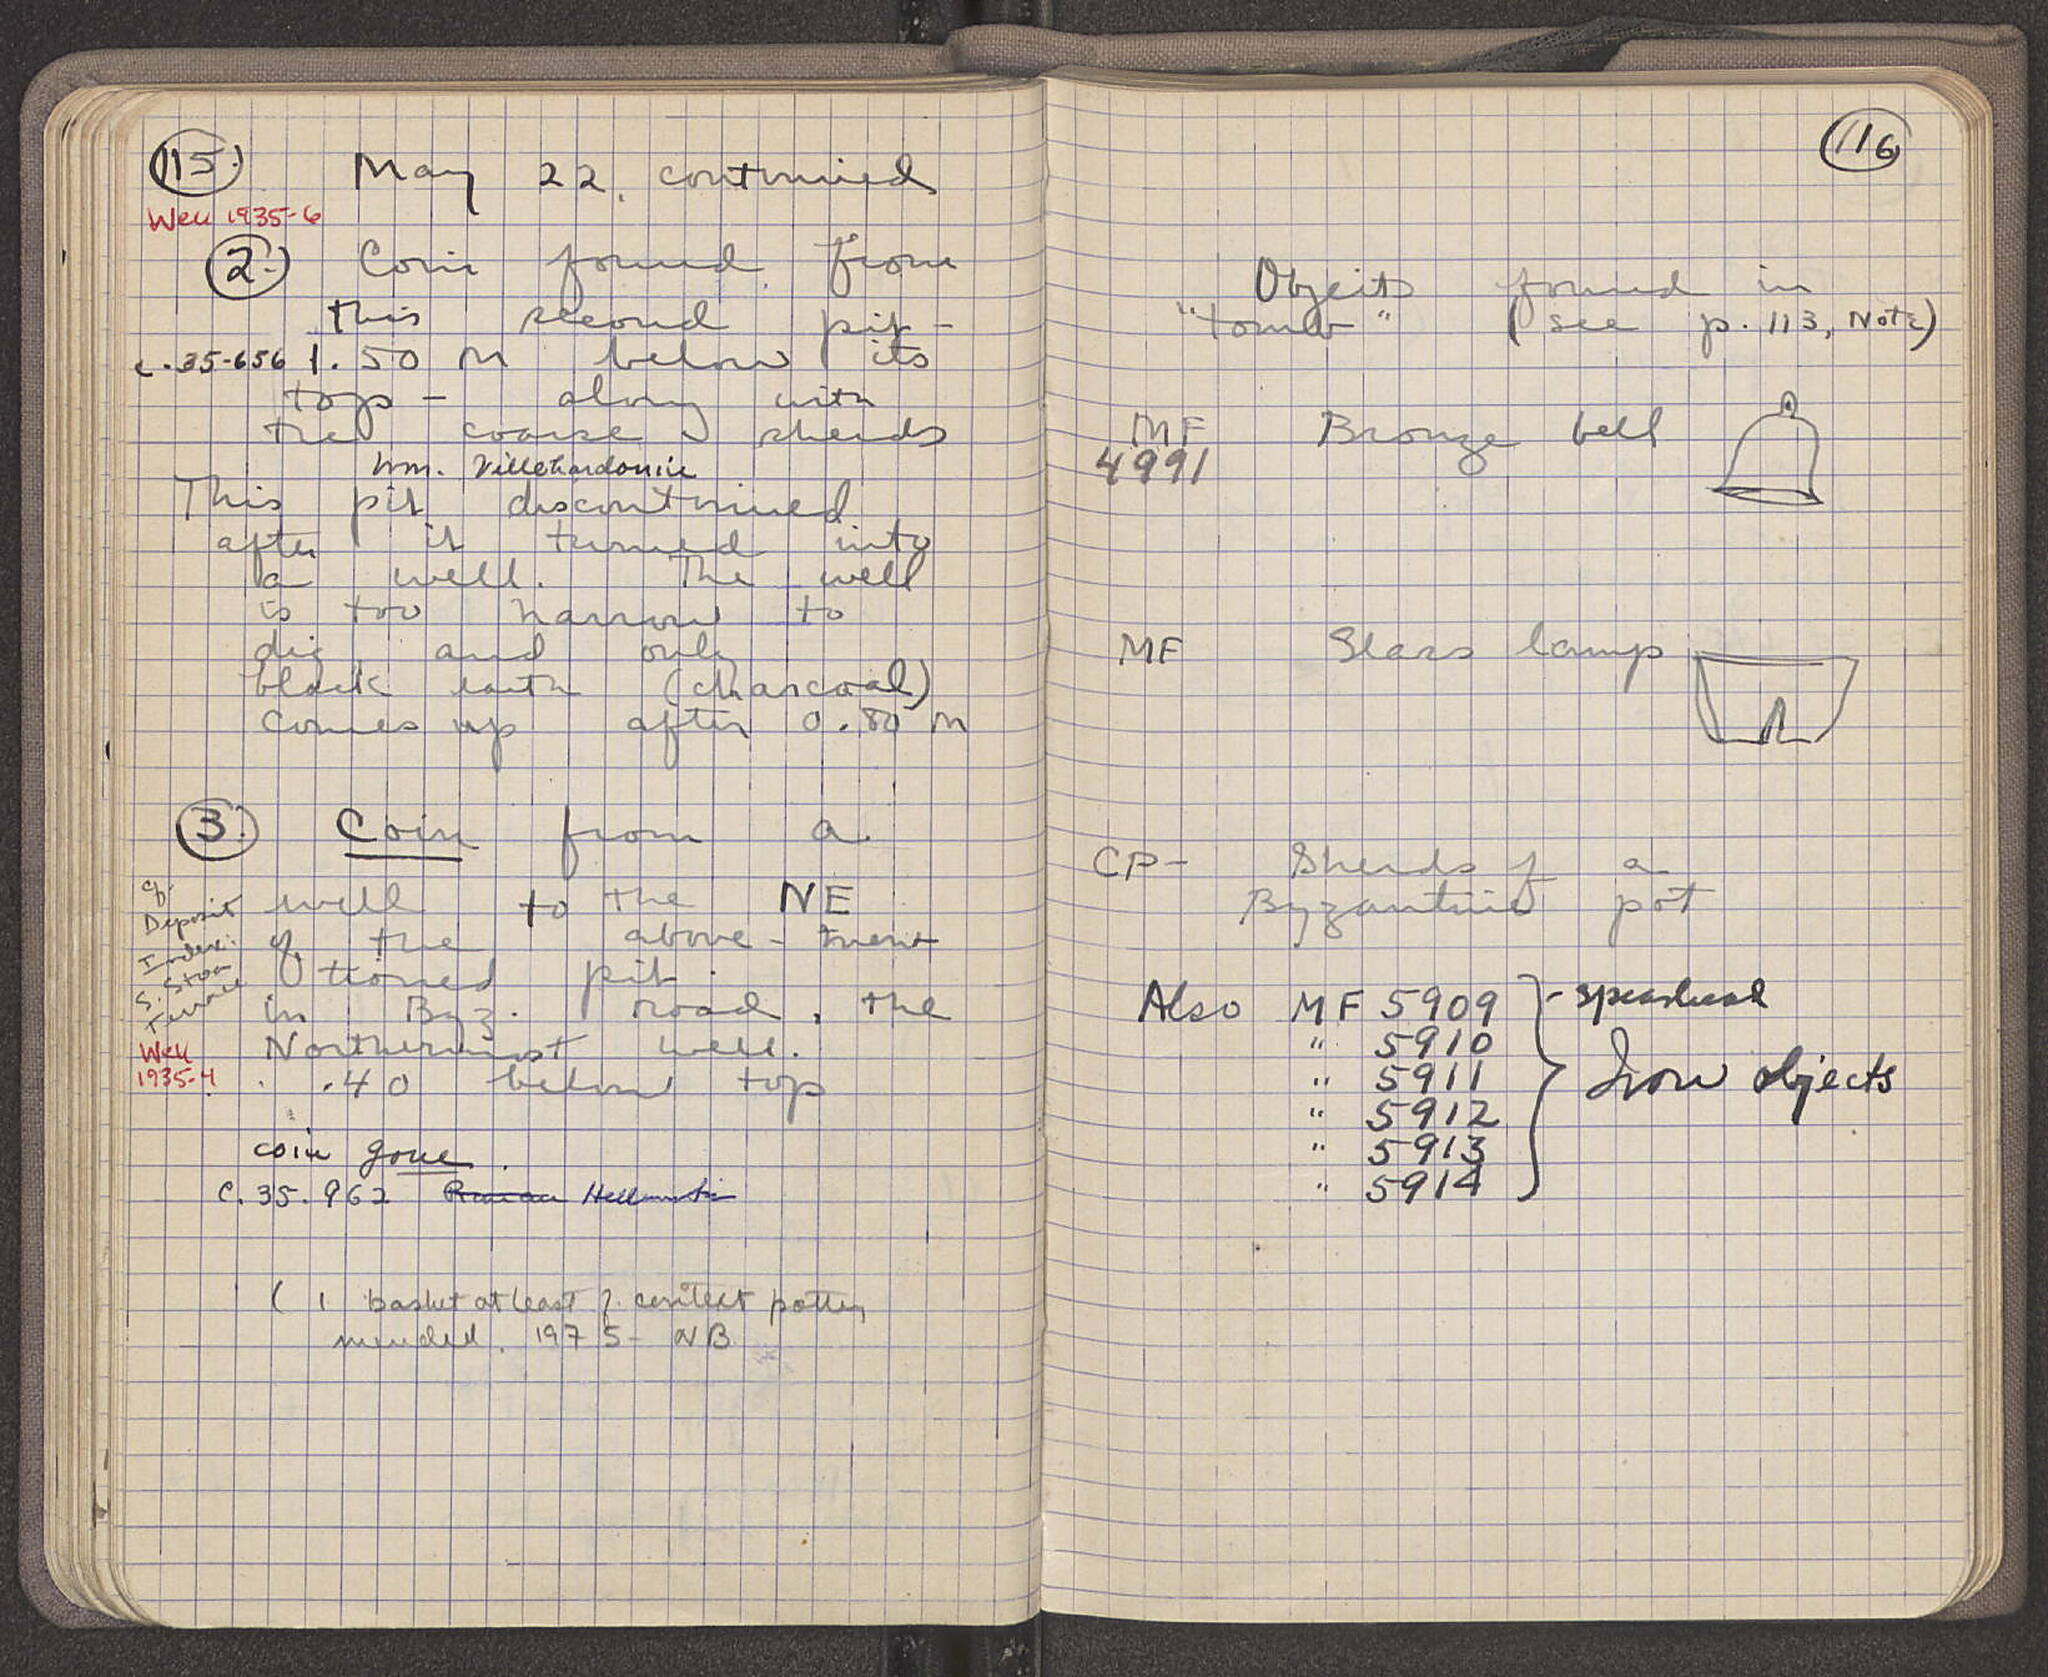 115.)
May 22, continued
Well 1935-6
2.) Coin found from
this second pit -
c. 35-656 1.50 M below its
top - along with
the coarse sherds
Wm. Villehardouin
This pit discontinued
after it turned into
a well. The well
is too narrow to
dig and only
black earth (charcoal)
comes up after 0.80 M
3.) Coin from a
well to the NE
of the above-men-
tioned pit.
in Byz. road, the
Northernmost well.
.40 below top
cf.
Deposit
Index:
S. Stoa
Terrace
Well
1935-4
coin gone.
C. 35. 962 Roman Hellenistic
( 1 basket at least of context pottery
mended. 1975 - NB
116
Objects found in
"tomb" (see p. 113, Note)
MF Bronze bell
4991
MF Glass lamp
CP- Sherds of a
Byzantine pot
Also MF 5909 - spearhead
" 5910
" 5911 Iron objects
" 5912
" 5913
" 5914